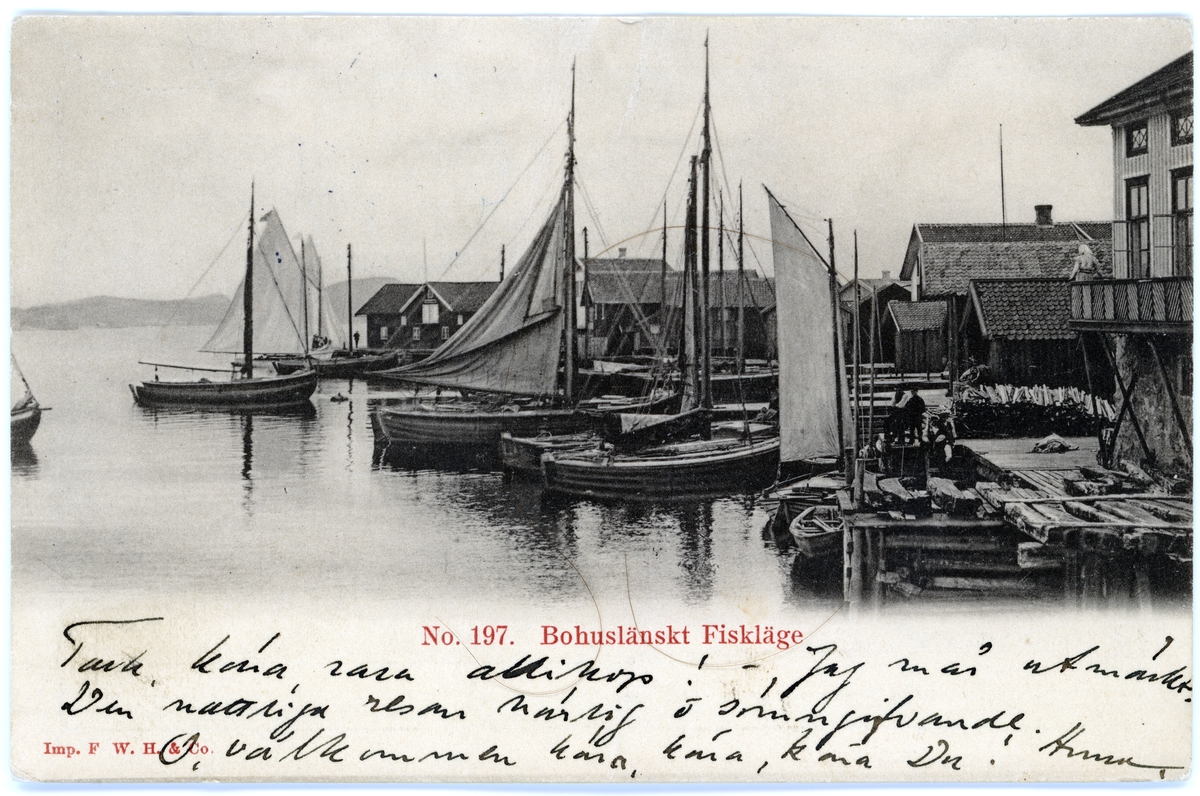 No. 197. Bohuslänskt Fiskläge
Tack, kära, rara allihop! –, Jag mår utmärkt.
Den nattliga resan härlig o sömngifvande.
Imp. F. W. H. & Co.
O, välkommen kära, kära, kära Du.